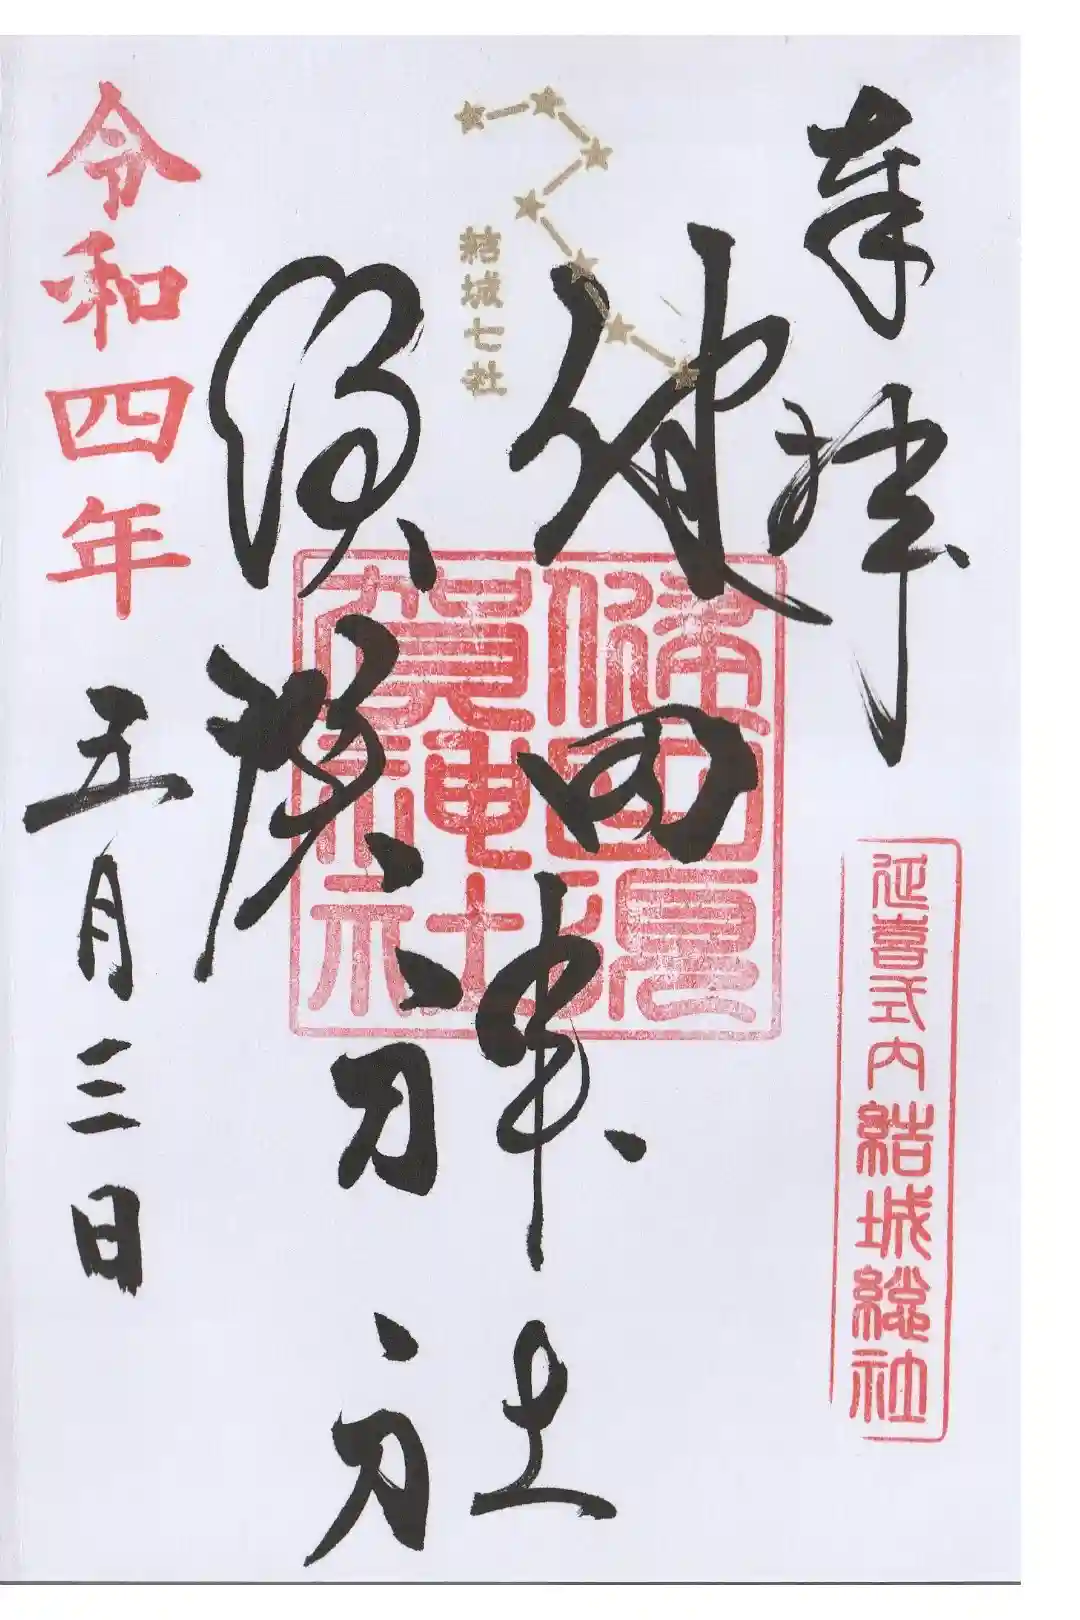 奉拝
延喜式内結城総社
結城七社
健田須賀神社
健田須賀神社
令和四年五月三日